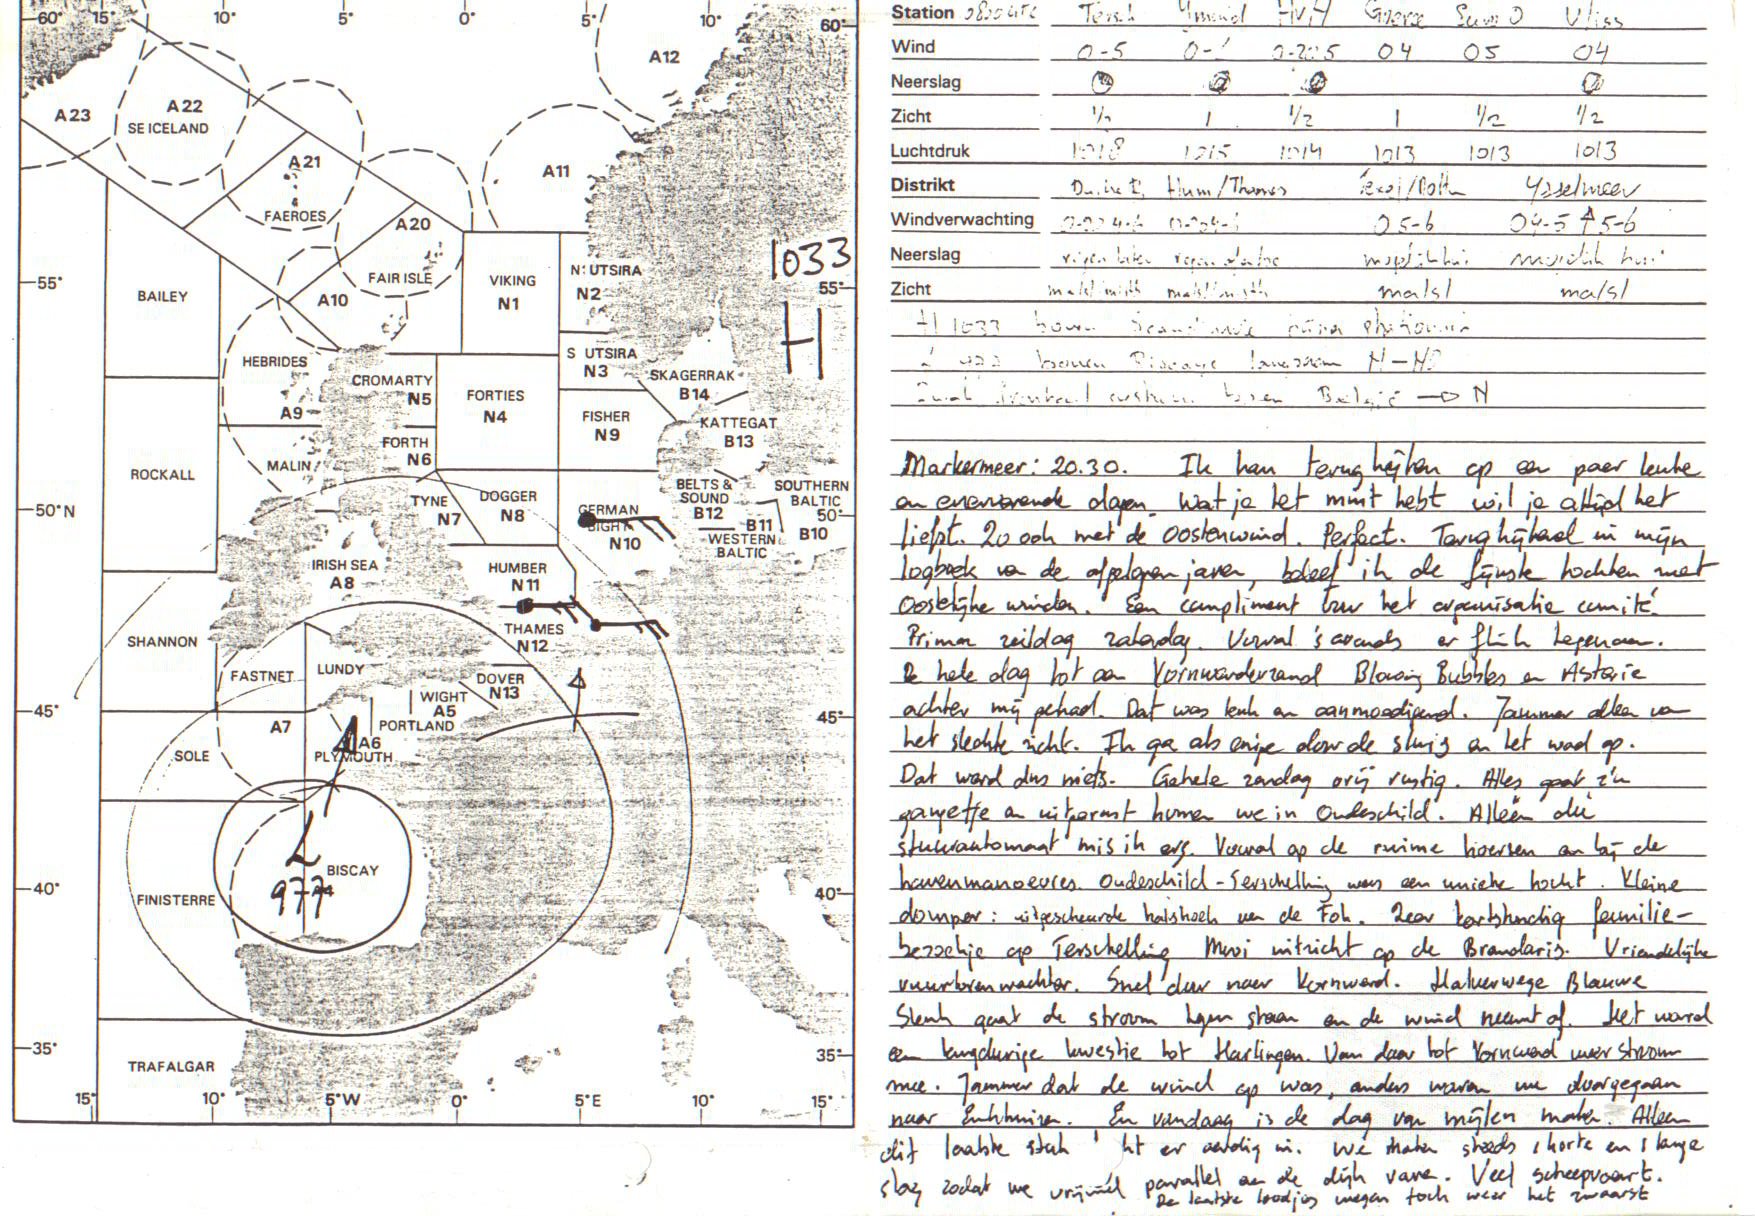 60° 15° 10° 5° 0° 5° 10° 60°
A12
A23
A22
SE ICELAND
A21
FAEROES
A11
A20
FAIR ISLE
A10
VIKING
N1
N. UTSIRA
N2
1033
H
55°
55°
BAILEY
HEBRIDES
A9
S UTSIRA
N3
CROMARTY
N5
FORTIES
N4
SKAGERRAK
B14
FISHER
N9
KATTEGAT
B13
ROCKALL
MALIN
FORTH
N6
TYNE
N7
DOGGER
N8
GERMAN
BIGHT
N10
BELTS &
SOUND
B12
B11
WESTERN
BALTIC
SOUTHERN
BALTIC
B10
50°N
50°
IRISH SEA
A8
HUMBER
N11
THAMES
N12
SHANNON
FASTNET
LUNDY
DOVER
N13
WIGHT
A5
PORTLAND
45°
45°
A7
SOLE
A6
PLYMOUTH
L
977
BISCAY
A4
FINISTERRE
40°
40°
35°
35°
TRAFALGAR
15° 10° 5°W 0° 5°E 10° 15°
Station 0800 UTC Tersch HvH Goeree Vliss
Wind 0-5 04 05 04
Neerslag
Zicht 1/2 1 1/2 1 1/2 1/2
Luchtdruk 1018 1015 1014 1013 1013 1013
Distrikt Hum/Thames IJsselmeer
Windverwachting 05-6 04-5 5-6
Neerslag
Zicht ma/sl ma/sl
H 1033 boven Scandinavië
boven Biscaye langzaam N-NO
boven België → N
Markermeer: 20.30. Ik kan terugkijken op een paar leuke
en enerverende dagen. Wat je het minst hebt wil je altijd het
liefst. Zo ook met de Oostenwind. Perfect. Terugkijkend in mijn
logboek van de afgelopen jaren, beleef ik de fijnste tochten met
Oostelijke winden. Een compliment voor het organisatie comité.
Prima zeildag zaterdag. Vooral 's avonds er flink tegenaan.
De hele dag tot aan Kornwerderzand Blowing Bubbles en Astarie
achter mij gehad. Dat was leuk en aanmoedigend. Jammer alleen van
het slechte zicht. Ik ga als enige door de sluis en het wad op.
Dat werd dus niets. Gehele zondag vrij rustig. Alles gaat z'n
gangetje en uitgerust komen we in Oudeschild. Alleen die
stuurautomaat mis ik erg. Vooral op de ruime koersen en bij de
havenmanoevres. Oudeschild - Terschelling was een unieke tocht. Kleine
domper: uitgescheurde halshoek van de Fok. Zeer kortstondig familie-
bezoekje op Terschelling. Mooi uitzicht op de Brandaris. Vriendelijke
vuurtorenwachter. Snel door naar Kornwerd. Halverwege Blauwe
Slenk gaat de stroom tegen staan en de wind neemt af. Het werd
een langdurige kwestie tot Harlingen. Van daar tot Kornwerd weer stroom
mee. Jammer dat de wind op was, anders waren we doorgegaan
naar Enkhuizen. En vandaag is de dag van mijlen maken. Alleen
dit laatste stuk er aardig in. We maken steeds 1 korte en 1 lange
slag zodat we vrijwel parallel aan de dijk varen. Veel scheepvaart.
De laatste loodjes wegen toch weer het zwaarst